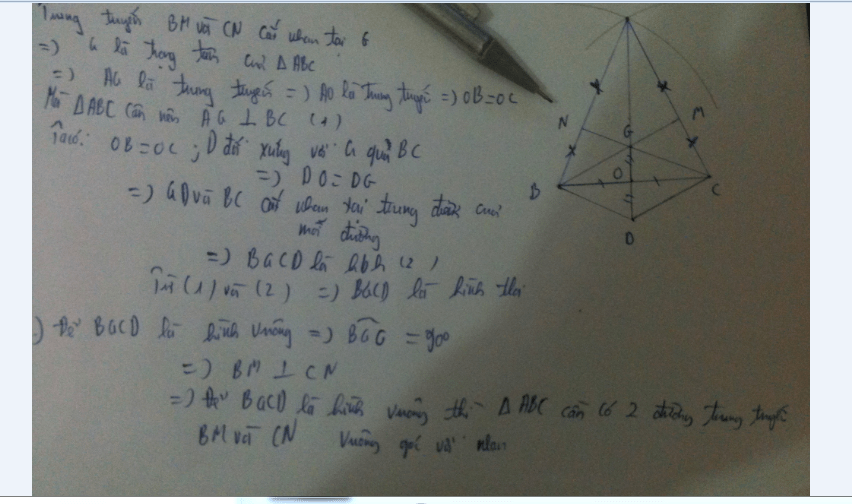 Trung tuyến BM và CN cắt nhau tại G
=) G là trọng tâm của Δ ABC
=) AG là trung tuyến =) AO là trung tuyến =) OB=OC
Mà ΔABC cân nên AG ⊥ BC (1)
Ta có: OB=OC ; D đối xứng với G qua BC
=) DO = DG
=) GD và BC cắt nhau tại trung điểm của
mỗi đường
=) BGCD là hbh (2)
Từ (1) và (2) =) BGCD là hình thoi
) Để BGCD là hình vuông =) = 90°
=) BM ⊥ CN
=) Để BGCD là hình vuông thì Δ ABC cần có 2 đường trung tuyến
BM và CN vuông góc với nhau
N
M
G
O
B
C
D